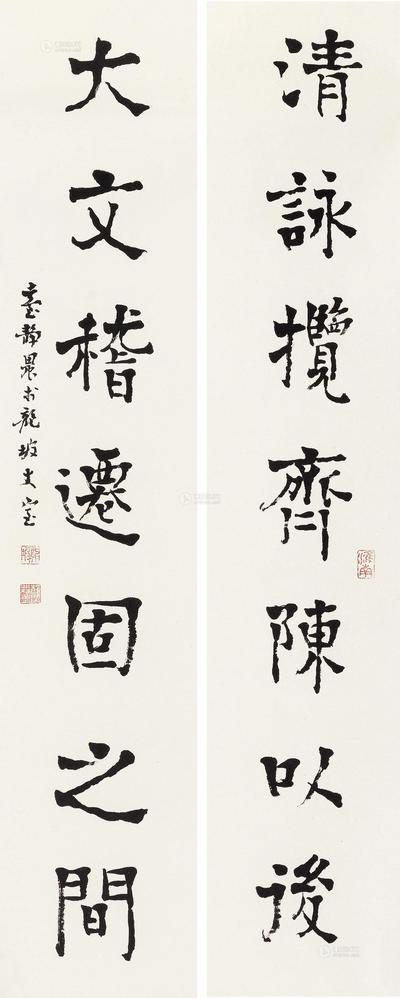 清詠攬齊陳以後
大文稽遷固之間
臺靜農於龍坡丈室